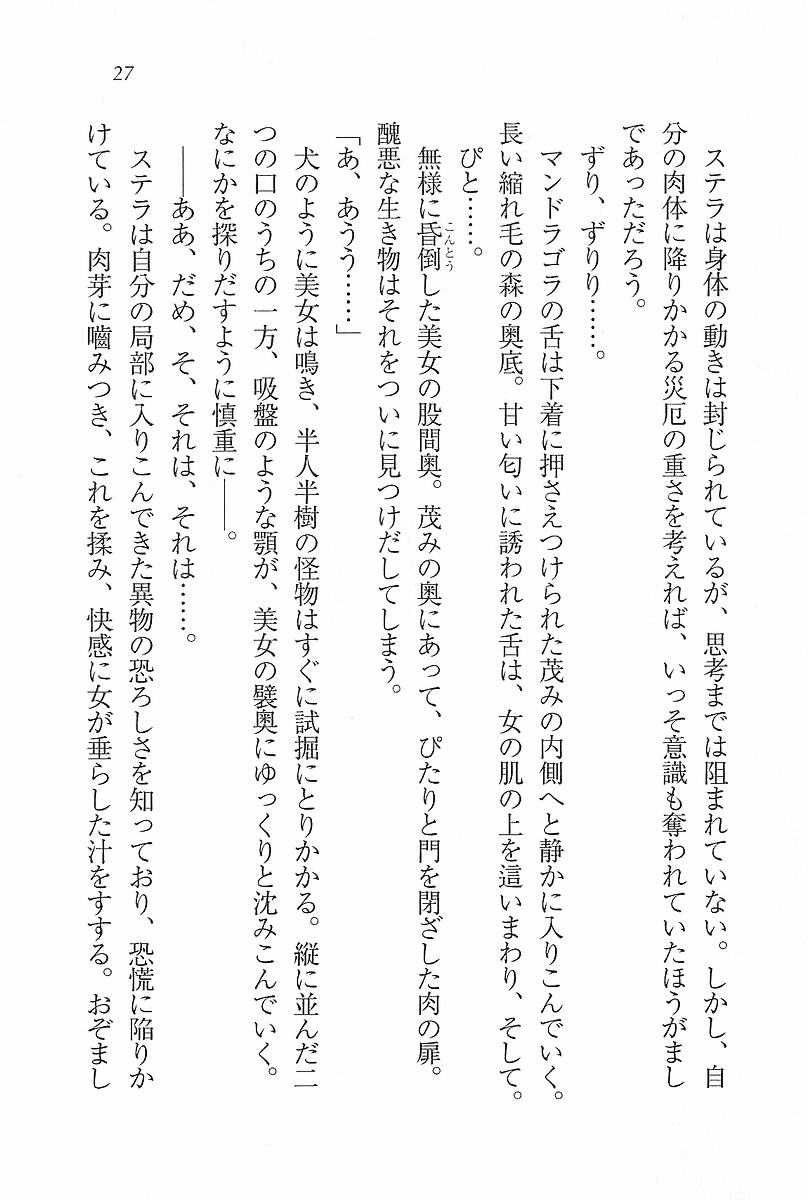 27
ステラは身体の動きは封じられているが、思考までは阻まれていない。しかし、自
分の肉体に降りかかる災厄の重さを考えれば、いっそ意識も奪われていたほうがまし
であっただろう。
ずり、ずりり……。
マンドラゴラの舌は下着に押さえつけられた茂みの内側へと静かに入りこんでいく。
長い縮れ毛の森の奥底。甘い匂いに誘われた舌は、女の肌の上を這いまわり、そして。
ぴと……。
無様に昏倒した美女の股間奥。茂みの奥にあって、ぴたりと門を閉ざした肉の扉。
こんとう
醜悪な生き物はそれをついに見つけだしてしまう。
「あ、あうう……」
犬のように美女は鳴き、半人半樹の怪物はすぐに試掘にとりかかる。縦に並んだ二
つの口のうちの一方、吸盤のような顎が、美女の襞奥にゆっくりと沈みこんでいく。
なにかを探りだすように慎重に――。
――ああ、だめ、そ、それは、それは……。
ステラは自分の局部に入りこんできた異物の恐ろしさを知っており、恐慌に陥りか
けている。肉芽に嚙みつき、これを揉み、快感に女が垂らした汁をすする。おぞまし